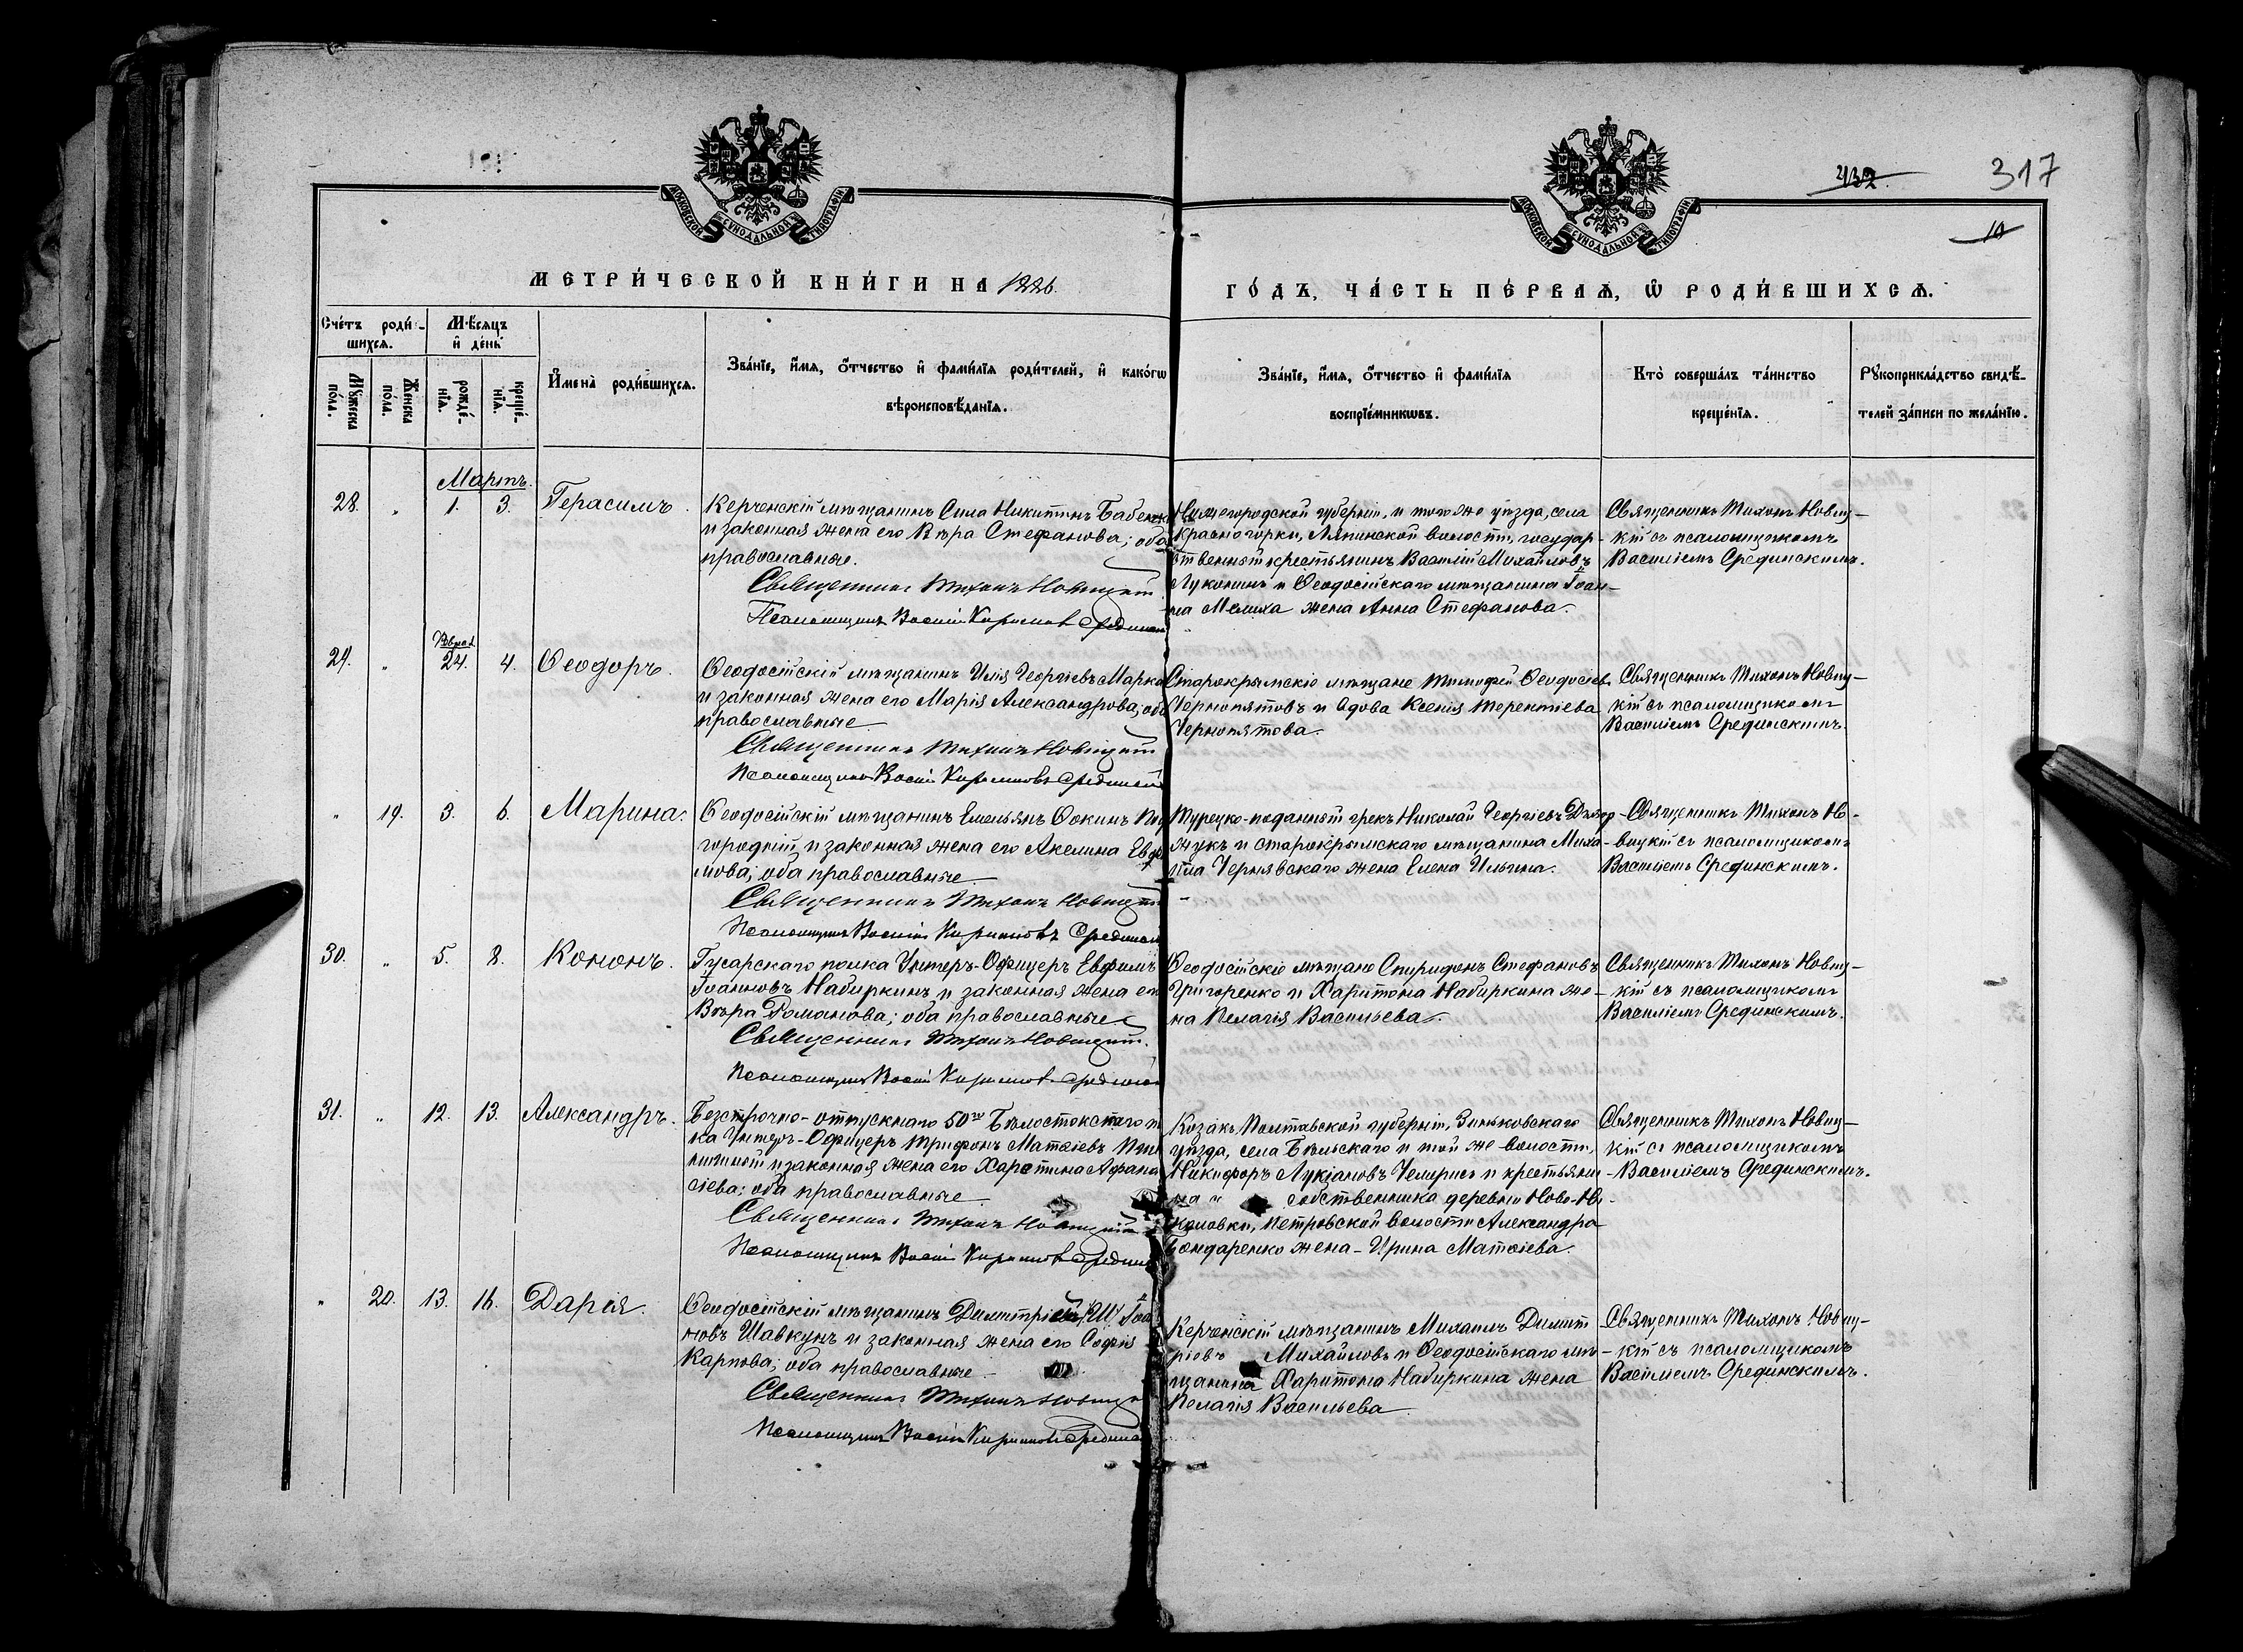 432.
317
10
МОСКОВСКОЙ СѴНОДАЛЬНОЙ ТИПОГРАФІИ
МОСКОВСКОЙ СѴНОДАЛЬНОЙ ТИПОГРАФІИ
МЕТРИ́ЧЕСКОЙ КНИ́ГИ НА 1886.
ГО́ДЪ, ЧА́СТЬ ПЕ́РВАѦ, Ѡ РОДИ́ВШИХСѦ.
Сче́тъ роди́-
шихсѧ.
Мѣ́сѧцъ
и де́нь
Мꙋ́жеска по́ла.
Же́нска по́ла.
рожде́-нїѧ.
креще́-нїѧ.
И҆мена̀ роди́вшихсѧ.
Зва́нїе, и҆́мѧ, ѻ҆́тчество и҆ фами́лїѧ роди́телей, и҆ како́гѡ
вѣроисповѣ́данїѧ.
Зва́нїе, и҆́мѧ, ѻ҆́тчество и҆ фами́лїѧ
воспрїе́мникѡвъ.
Кто̀ соверша́лъ та́инство
креще́нїѧ.
Рꙋкоприкла́дство свидѣ́-
телей за́писи по жела́нїю.
Мартъ.
28. „ 1. 3. Герасимъ.
Керченскій мѣщанинъ Сила Никитинъ
и законная жена его Вѣра Стефанова; оба
православные.
Священникъ Тихонъ Новицкій
Псаломщикъ Василій Срединскій
Нижегородской губерніи, и того же уѣзда, села
Красногорки, волости, государ-
ственный крестьянинъ Василій Михайловъ
Луконинъ и Ѳеодосійскаго мѣщанина Іоан-
на Мелиха жена Анна Стефанова.
Священникъ Тихонъ Новиц-
кій съ псаломщикомъ
Василіемъ Срединскимъ.
29. „ Февраля 24. 4. Ѳеодоръ.
Ѳеодосійскій мѣщанинъ Илія Георгіевъ
и законная жена его Марія Александрова; оба
православные
Священникъ Тихонъ Новицкій
Псаломщикъ Василій Срединскій
Старокрымскіе мѣщане Тимофей Ѳеодосіевъ
Чернопятовъ и вдова Ксенія Терентіева
Чернопятова.
Священникъ Тихонъ Новиц-
кій съ псаломщикомъ
Василіемъ Срединскимъ.
„ 19. 3. 6. Марина.
Ѳеодосійскій мѣщанинъ Емельянъ Ѳокинъ
и законная жена его Акелина
мова; оба православные
Священникъ Тихонъ Новицкій
Псаломщикъ Василій Срединскій
Турецко-поданный грекъ Николай Георгіевъ
и старокрымскаго мѣщанина Миха-
ила Чернявскаго жена Елена Ильина.
Священникъ Тихонъ Но-
вицкій съ псаломщикомъ
Василіемъ Срединскимъ.
30. „ 5. 8. Кононъ.
Гусарскаго полка Унтеръ-Офицеръ Евфимъ
Іоанновъ Набиркинъ и законная жена его
Вѣра Романова; оба православные
Священникъ Тихонъ Новицкій.
Псаломщикъ Василій Срединскій
Ѳеодосійскіе мѣщане Спиридонъ Стефановъ
Григоренко и Харитона Набиркина же-
на Пелагія Васильева.
Священникъ Тихонъ Новиц-
кій съ псаломщикомъ
Василіемъ Срединскимъ.
31. „ 12. 13. Александръ.
Безсрочно-отпускнаго 50го Бѣлостокскаго по
ка Унтеръ-Офицеръ Трифонъ Матѳіевъ
и законная жена его Харетина Афана
сіева; оба православные
Священникъ Тихонъ Новицкій
Псаломщикъ Василій Срединскій
Козакъ Полтавской губерніи, Зиньковскаго
уѣзда, села Бѣльскаго и той же волости,
Никифоръ Лукіановъ и крестьяни-
на собственника деревни Ново-Ни-
колаовки, Петровской волости Александра
Бондаренко жена – Ирина Матѳіева.
Священникъ Тихонъ Новиц-
кій съ псаломщикомъ
Василіемъ Срединскимъ.
„ 20. 13. 16. Дарія.
Ѳеодосійскій мѣщанинъ Димитрій Іоан
новъ Шавкунъ и законная жена его Софія
Карпова; оба православные
Священникъ Тихонъ Новицкій
Псаломщикъ Василій Срединскій
Керченскій мѣщанинъ Михаилъ Димит
ріевъ Михайловъ и Ѳеодосійскаго мѣ-
щанина Харитона Набиркина жена
Пелагія Васильева.
Священникъ Тихонъ Новиц-
кій съ псаломщикомъ
Василіемъ Срединскимъ.